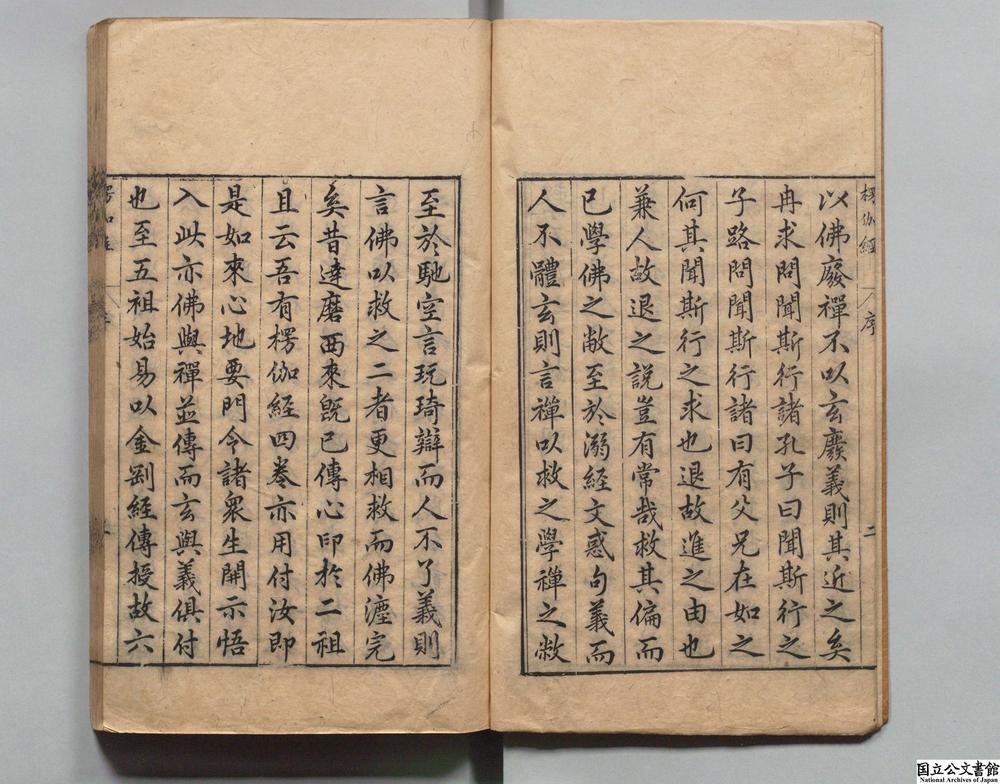 楞伽經
序
二
以佛廢禪不以玄廢義則其近之矣
冉求問聞斯行諸孔子曰聞斯行之
子路問聞斯行諸曰有父兄在如之
何其聞斯行之求也退故進之由也
兼人故退之説豈有常哉救其偏而
已學佛之敝至於溺經文惑句義而
人不體玄則言禪以救之學禪之敝
至於馳空言玩琦辯而人不了義則
言佛以救之二者更相救而佛灋完
矣昔達磨西來既已傳心印於二祖
且云吾有楞伽經四卷亦用付汝即
是如來心地要門令諸衆生開示悟
入此亦佛與禪並傳而玄與義俱付
也至五祖始易以金剛經傳授故六
国立公文書館
National Archives of Japan